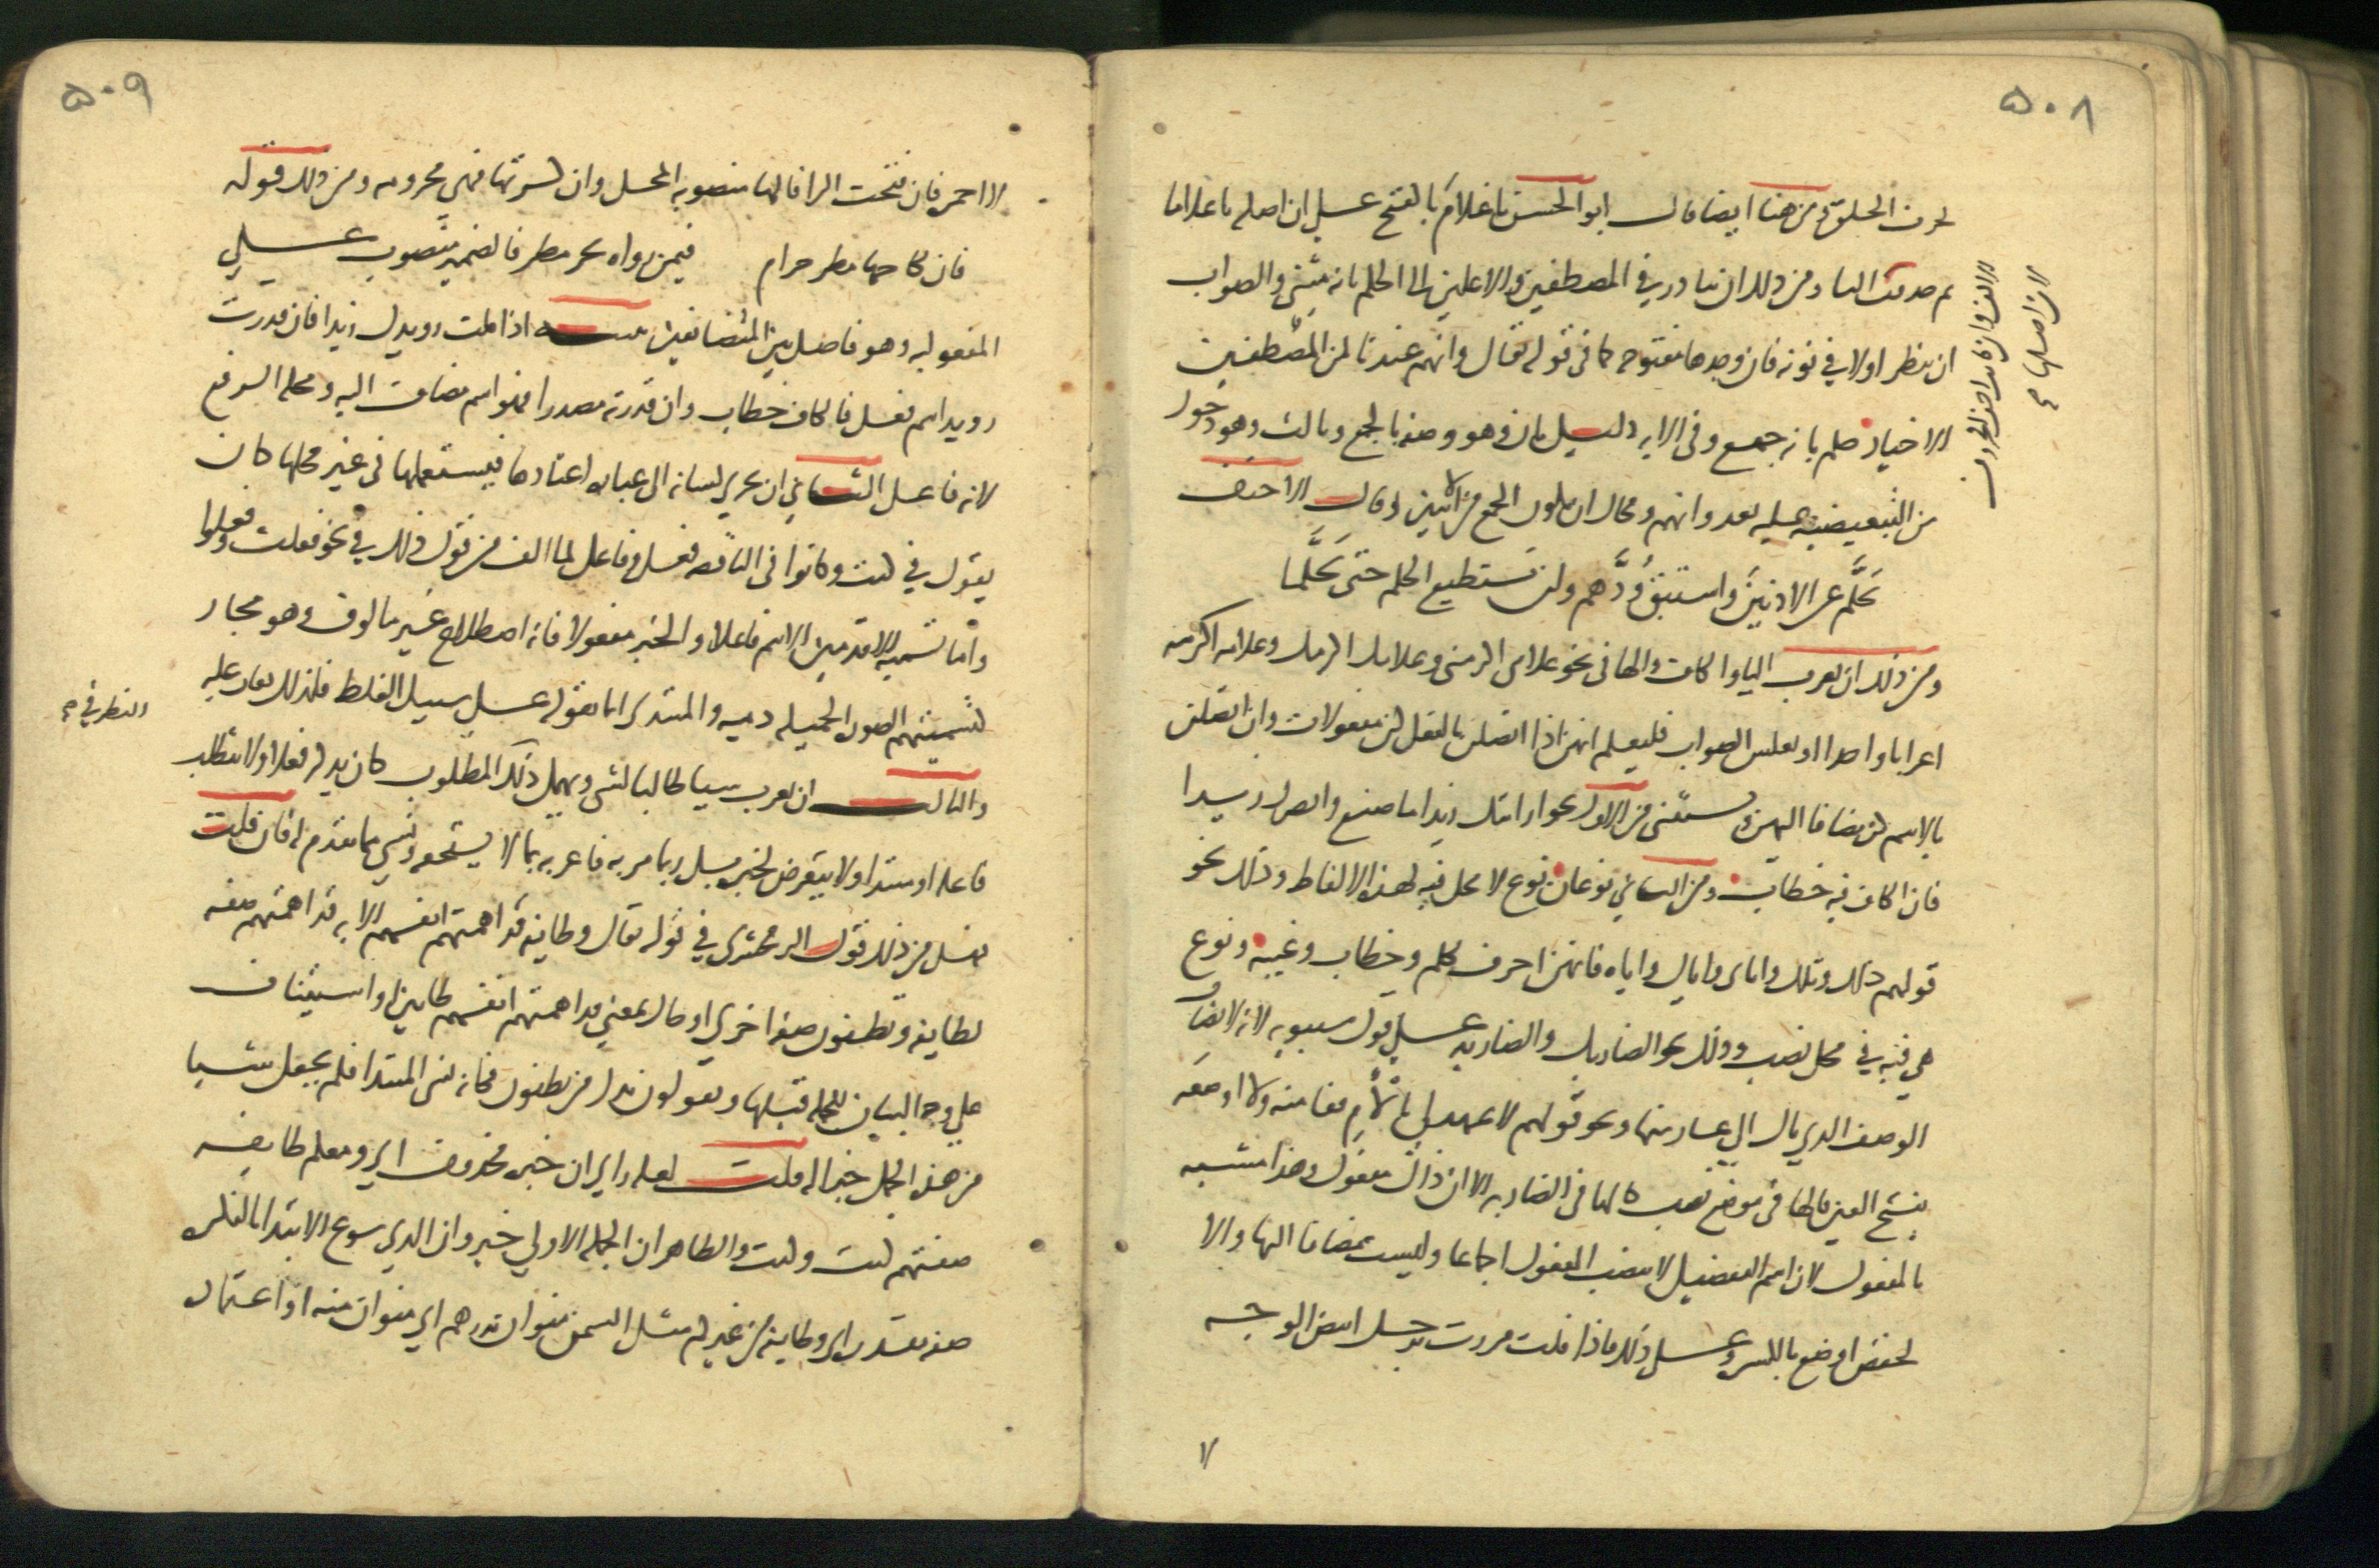 ٥٠٨
لحرف الحلق ومن هنا ايضا قال ابو الحسن يا غلامَ بالفتح على ان اصله يا غلاما
ثم حذفت الفا ومن ذلك ان يبادر في المصطفين والاعلين الى الحكم بانه مثنى والصواب
ان ينظر اولا في نونه فان وجدها مفتوحه كما في قوله تعالى وانهم عندنا لمن المصطفين
الاخيار حكم بانه جمع وفي الايه دليل ثان وهو وصفه بالجمع وثالث وهو دخول
من التبعيضيه عليه بعد وانهم ومحال ان يكون الجمع من الاثنين وقال الاحنف
تحَلَّم عن الادنينَ واستبق وُدَّهم ولن تستطيع الحلم حتى تحَلَّما
ومن ذلك ان يعرب اليا والكاف والها في نحو غلامي اكرمني وغلامك اكرمك وغلامه اكرمه
اعرابا واحدا او يعكس الصواب فليعلم انهن اذا اتصلن بالفعل كن مفعولات وان اتصلن
بالاسم كن مضافا اليهن ويستثنى من الاول نحو ارايتك زيدا ما صنع وابصرك زيدا
فان الكاف فيه خطاب ومن الثاني نوعان نوع لا محل فيه لهذه الالفاظ وذلك نحو
قولهم ذلك وتلك واياي واياك واياه فانهن احرف تكلم وخطاب وغيبه ونوع
هي فيه في محل نصب وذلك نحو الضاربك والضاربه على قول سيبويه لانه لا يضاف
الوصف الذي بال الى عار منها ونحو قولهم لا عهد لي بالأم قفا منه ولا اوضعَه
بفتح العين فالها في موضع نصب كالها في الضاربه الا ان ذاك مفعول وهذا مشبه
بالمفعول لان اسم التفضيل لا ينصب المفعول اجماعا وليست مضافا اليها والا
لخفض اوضع بالكسر وعلى ذلك فاذا قلت مررت برجل ابيض الوجه
لا
٥٠٩
لا احمر فان فتحت الرا فالها منصوبه المحل وان كسرتها فهي مجروره ومن ذلك قوله
فان نكاحها مطر حرام فيمن رواه بجر مطر فالضمير منصوب على
المفعوليه وهو فاصل بين المتضايفين تنبيه اذا قلت رويدك زيدا فان قدرت
رويدا اسم فعل فالكاف خطاب وان قدرته مصدرا فهو اسم مضاف اليه ومحله الرفع
لانه فاعل الثاني ان يجري لسانه الى عباره اعتادها فيستعملها في غير محلها كان
يقول في كنت وكانوا في الناقصه فعل وفاعل لما الف من قول ذلك في نحو فعلت وفعلوا
واما تسميه الاقدمين الاسم فاعلا والخبر مفعولا فانه اصطلاح غير مالوف وهو مجاز
كتسميتهم الصوره الجميله دميه والمبتدي انما يقوله على سبيل الغلط فلذلك يعاب عليه
والثالث ان يعرب شيا طالبا لشي ويهمل ذلك المطلوب كان يعرب فعلا ولا يتطلب
فاعله او مبتدا ولا يتعرض لخبره بل ربما مر به فاعربه بما لا يستحقه ونسي ما تقدم له فان قلت
فهل من ذلك قول الزمخشري في قوله تعالى وطايفه قد اهمتهم انفسهم الايه قد اهمتهم صفه
لطايفه ويظنون صفه اخرى او حال بمعنى قد اهمتهم انفسهم ظانين او استيناف
على وجه البيان للجمله قبلها ويقولون بدل من يظنون فكانه نسي المبتدا فلم يجعل شيا
من هذه الجمل خبرا له قلت لعله راى ان خبره محذوف اي ومعكم طايفه
صفتهم كيت وكيت والظاهر ان الجمله الاولى خبر وان الذي سوغ الابتدا بالنكره
صفه مقدره اي وطايفه من غيركم مثل السمن منوان بدرهم اي منوان منه او اعتماده